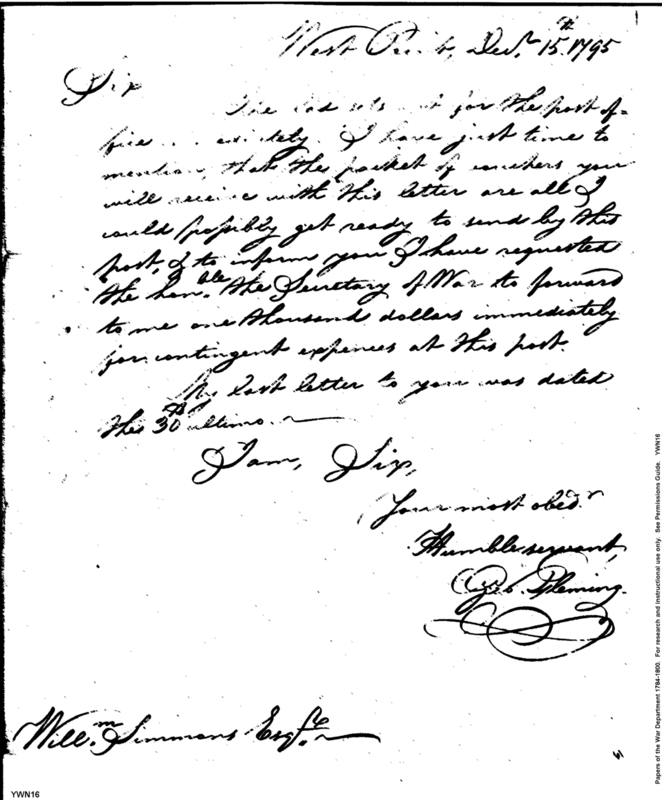 West Point, Decr. 15th. 1795
Sir
The lad sets out for the post of=
fice immediately. I have just time to
mention that the packet of vouchers you
will receive with this letter are all I
could possibly get ready to send by this
post, & to inform you I have requested
the honble. the Secretary of War to forward
to me one thousand dollars immediately
for contingent expences at this post.
My last letter to you was dated
the 30th ultimo.
I am, Sir,
Your most obedt.
Humble servant,
Geo. Fleming.
Willm. Simmons Esqre.
YWN16
Papers of the War Department 1784-1800. For research and instructional use only. See Permissions Guide. YWN16